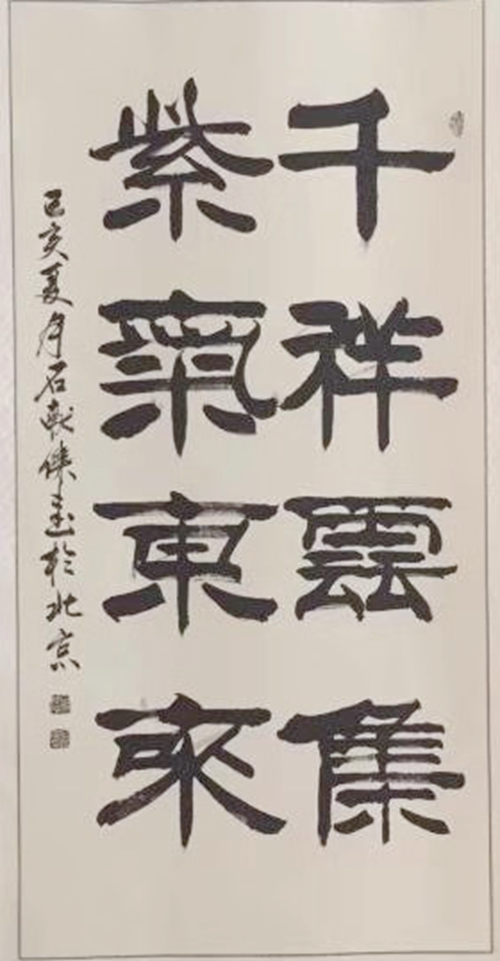 千祥雲集
紫氣東來
己亥夏月石軒俠書於北京